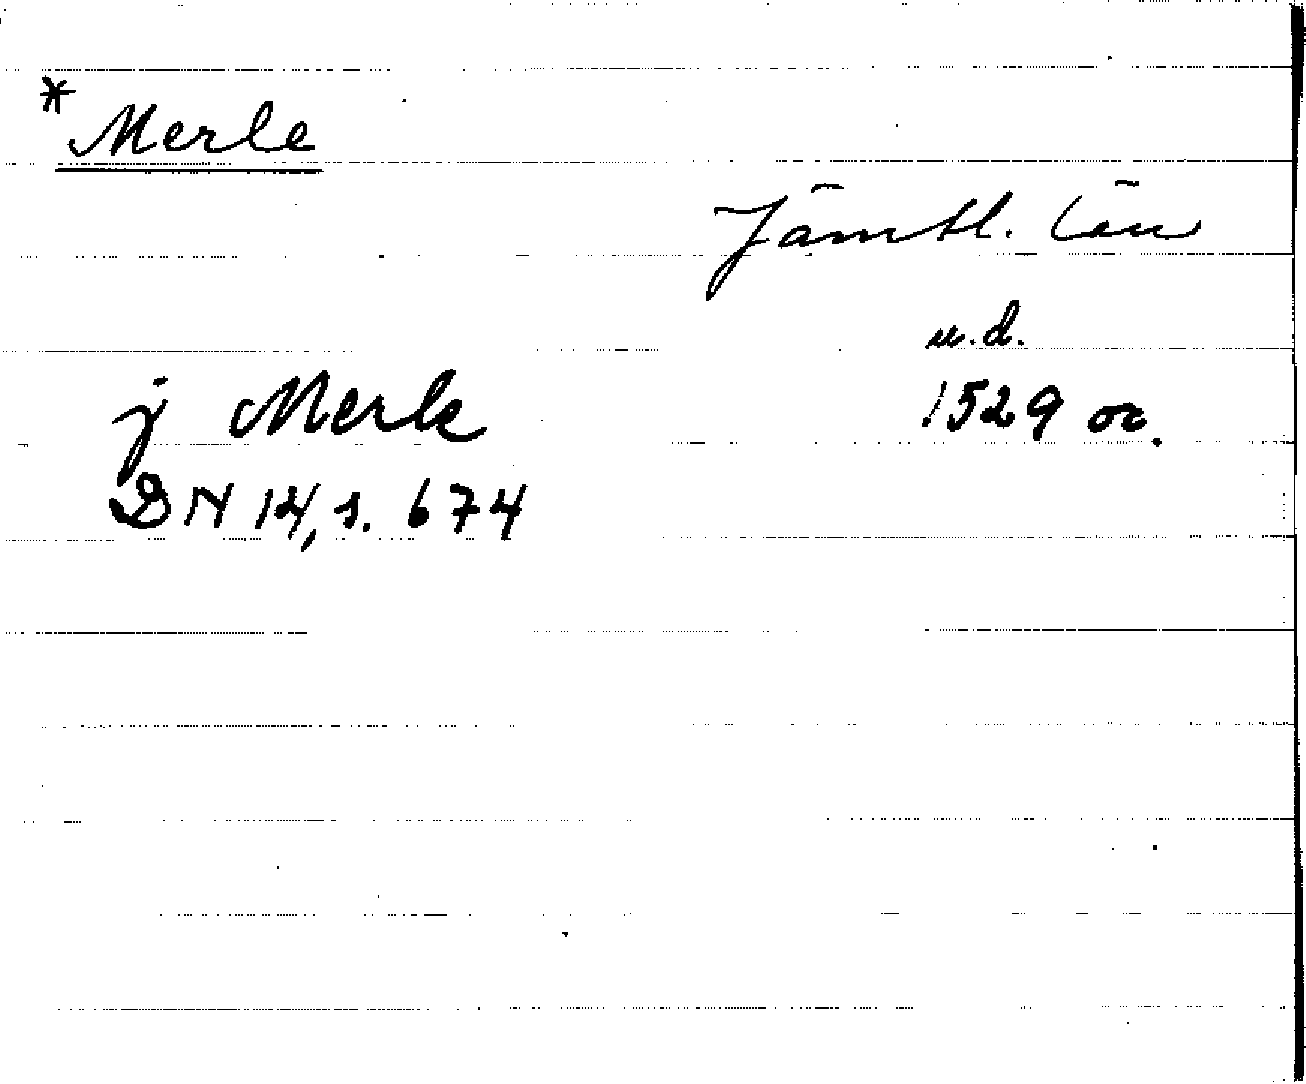 * Merle
Jämtl. län
u.d.
j Merle 1529 or.
DN 14, s. 674